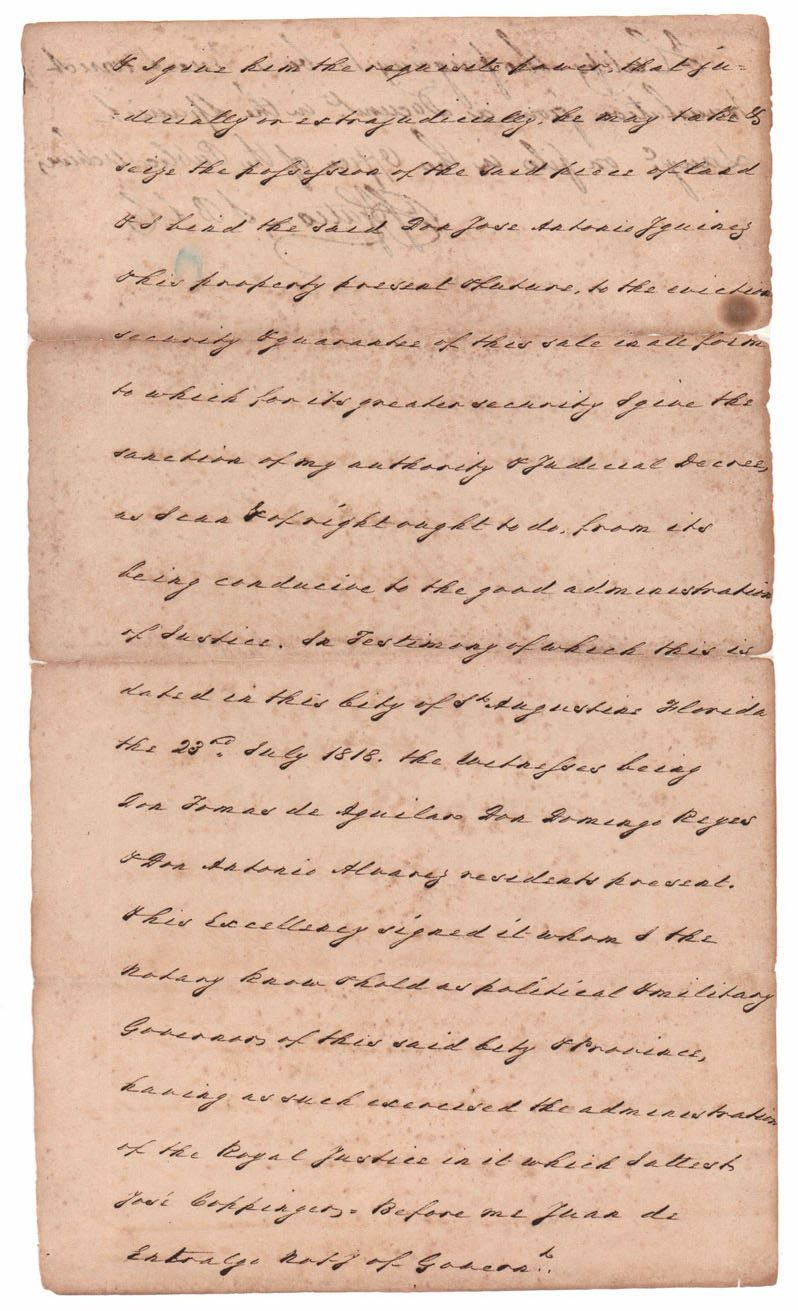 & I give him the requisite power that ju-
-dicially or extrajudicially, he may take &
seize the possession of the said piece of land
& I bend the said Don Jose Antonio Yguinez
& his property present & future, to the eviction
security & guarantee of this sale in all form
to which for its greater security I give the
sanction of my authority & Judicial Decree,
as I can & of right ought to do, from its
being conducive to the good administration
of Justice. In Testimony of which this is
dated in this City of St. Augustine Florida
the 23rd. July 1818. the Witnesses being
Don Tomas de Aguilar Don Domingo Reyes
& Don Antonio Alvarez residents present.
& his Excellency signed it whom I the
Notary know & hold as political & military
Governor, of this said City & Province,
having as such exercised the administration
of the Royal Justice in it which I attest,
José Coppinger, = Before me Juan de
Entralgo Noty of Governt.